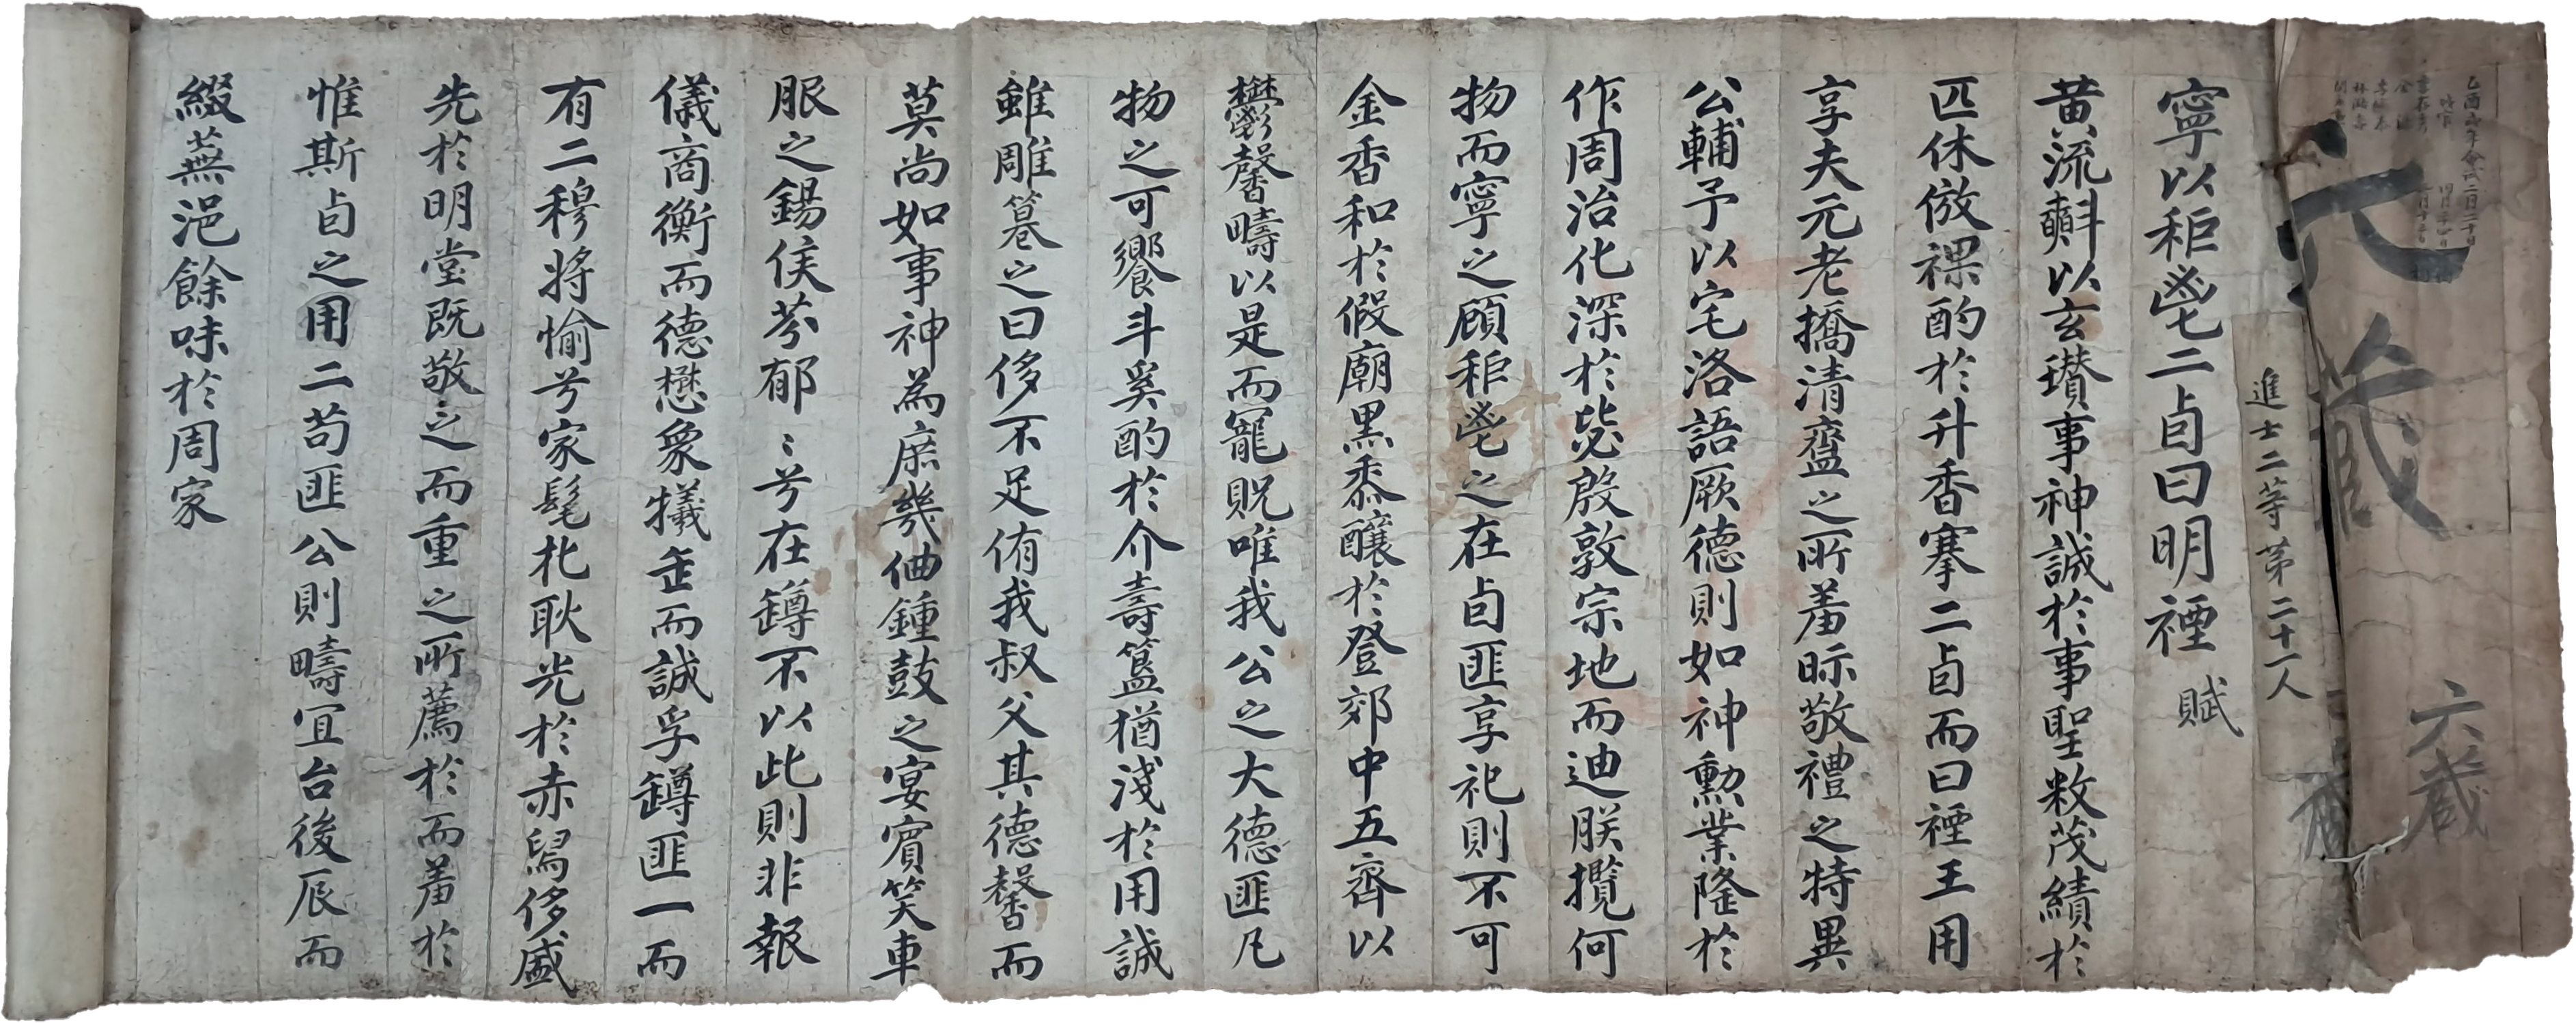 六 藏
進士二等第二十一人
寧以秬鬯二卣曰明禋 賦
黃流㪺以玄瓚事神誠於事聖敉茂績於
匹休倣祼酌於升香搴二卣而曰禋王用
享夫元老撟清齍之所羞眎敬禮之特異
公輔予以宅洛語厥德則如神勳業隆於
作周治化深於毖殷敦宗地而迪朕攬何
物而寧之顧秬鬯之在卣匪享祀則不可
金香和於假廟黑黍釀於登郊中五齊以
鬱馨疇以是而寵貺唯我公之大德匪凡
物之可饗斗奚酌於介壽簋猶淺於用誠
雖雕篹之曰侈不足侑我叔父其德馨而
莫尚如事神為庶幾偭鍾鼓之宴賓笑車
服之錫侯芬郁〻兮在罇不以此則非報
儀商衡而德懋象犧缶而誠孚罇匪一而
有二穆將愉兮家髦札耿光於赤舄侈盛
先於明堂既敬之而重之所薦於而羞於
惟斯卣之用二苟匪公則疇宜台後辰而
綴蕪浥餘味於周家